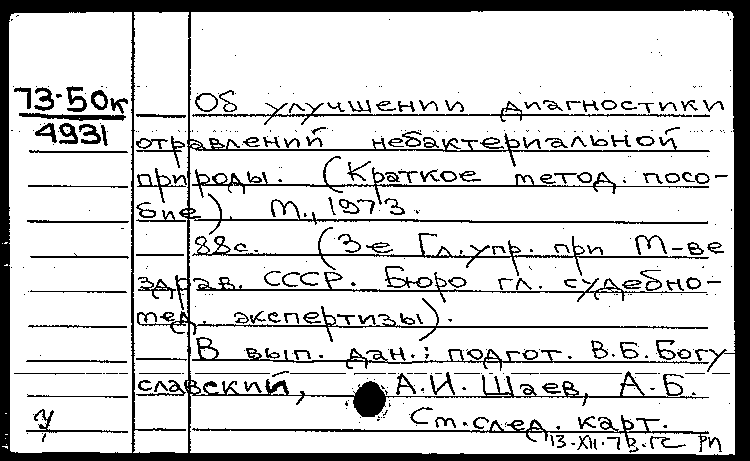 73-50к
4931
Об улучшении диагностики
отравлений небактериальной
природы. (Краткое метод. посо-
бие). М., 1973.
88с. (3-е Гл. упр. при М-ве
здрав. СССР. Бюро гл. судебно-
мед. экспертизы).
В вып. дан.: подгот. В.Б. Богу-
славский, А.И. Шаев, А.Б.
См. след. карт.
у
13.XII.73.ГС РП